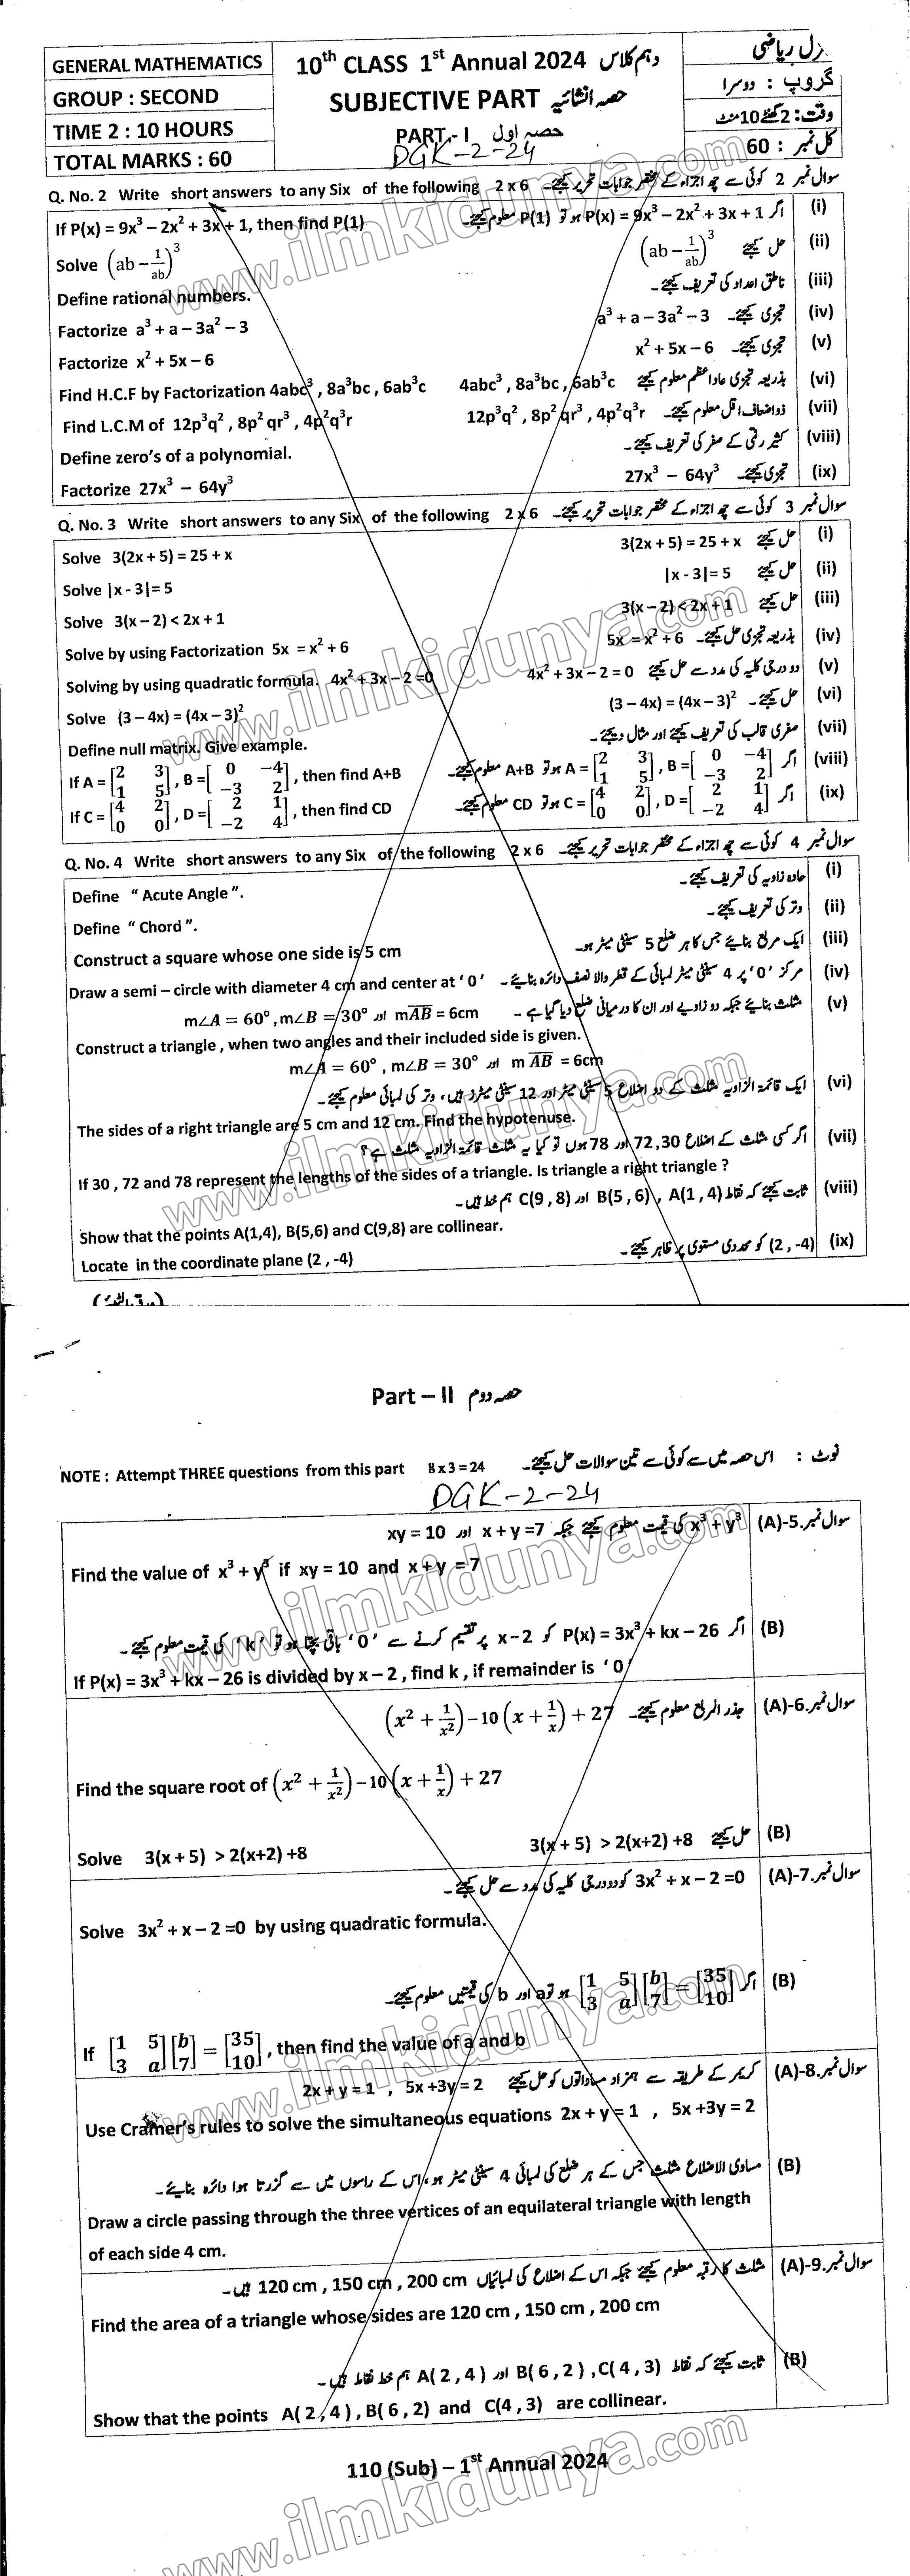 GENERAL MATHEMATICS
GROUP : SECOND
TIME 2 : 10 HOURS
TOTAL MARKS : 60
10th CLASS 1st Annual 2024 دہم کلاس
SUBJECTIVE PART حصہ انشائیہ
PART - I حصہ اول
DGK-2-24
ریاضی
گروپ : دوسرا
وقت : 2 گھنٹے 10 منٹ
کل نمبر : 60
Q. No. 2 Write short answers to any Six of the following 2 x 6 سوال نمبر 2 کوئی سے چھ اجزاء کے مختصر جوابات تحریر کیجئے۔
If P(x) = 9x³ – 2x² + 3x + 1, then find P(1) اگر P(x) = 9x³ – 2x² + 3x + 1 ہو تو P(1) معلوم کیجئے۔ (i)
Solve (ab – 1/ab)³ حل کیجئے (ab – 1/ab)³ (ii)
Define rational numbers. ناطق اعداد کی تعریف کیجئے۔ (iii)
Factorize a³ + a – 3a² – 3 تجزی کیجئے۔ a³ + a – 3a² – 3 (iv)
Factorize x² + 5x – 6 تجزی کیجئے۔ x² + 5x – 6 (v)
Find H.C.F by Factorization 4abc³ , 8a³bc , 6ab³c بذریعہ تجزی عاداعظم معلوم کیجئے 4abc³ , 8a³bc , 6ab³c (vi)
Find L.C.M of 12p³q² , 8p² qr³ , 4p²q³r ذواضعاف اقل معلوم کیجئے۔ 12p³q² , 8p² qr³ , 4p²q³r (vii)
Define zero's of a polynomial. کثیر رقمی کے صفر کی تعریف کیجئے۔ (viii)
Factorize 27x³ – 64y³ تجزی کیجئے۔ 27x³ – 64y³ (ix)
Q. No. 3 Write short answers to any Six of the following 2 x 6 سوال نمبر 3 کوئی سے چھ اجزاء کے مختصر جوابات تحریر کیجئے۔
Solve 3(2x + 5) = 25 + x حل کیجئے 3(2x + 5) = 25 + x (i)
Solve |x - 3|= 5 حل کیجئے |x - 3|= 5 (ii)
Solve 3(x – 2) < 2x + 1 حل کیجئے 3(x – 2) < 2x + 1 (iii)
Solve by using Factorization 5x = x² + 6 بذریعہ تجزی حل کیجئے۔ 5x = x² + 6 (iv)
Solving by using quadratic formula. 4x² + 3x – 2 =0 دو درجی کلیہ کی مدد سے حل کیجئے 4x² + 3x – 2 = 0 (v)
Solve (3 – 4x) = (4x – 3)² حل کیجئے۔ (3 – 4x) = (4x – 3)² (vi)
Define null matrix. Give example. صفری قالب کی تعریف کیجئے اور مثال دیجئے۔ (vii)
If A = [2 3; 1 5] , B = [0 −4; −3 2] , then find A+B اگر A = [2 3; 1 5] , B = [0 −4; −3 2] ہو تو A+B معلوم کیجئے۔ (viii)
If C = [4 2; 0 0] , D = [2 1; −2 4] , then find CD اگر C = [4 2; 0 0] , D = [2 1; −2 4] ہو تو CD معلوم کیجئے۔ (ix)
Q. No. 4 Write short answers to any Six of the following 2 x 6 سوال نمبر 4 کوئی سے چھ اجزاء کے مختصر جوابات تحریر کیجئے۔
Define “ Acute Angle ”. حادہ زاویہ کی تعریف کیجئے۔ (i)
Define “ Chord ”. وتر کی تعریف کیجئے۔ (ii)
Construct a square whose one side is 5 cm ایک مربع بنائیے جس کا ہر ضلع 5 سینٹی میٹر ہو۔ (iii)
Draw a semi – circle with diameter 4 cm and center at ‘ 0 ’ مرکز ‘0’ پر 4 سینٹی میٹر لمبائی کے قطر والا نصف دائرہ بنائیے۔ (iv)
مثلث بنائیے جبکہ دو زاویے اور ان کا درمیانی ضلع دیا گیا ہے ۔ m∠A = 60°, m∠B = 30° اور mAB = 6cm (v)
Construct a triangle , when two angles and their included side is given.
m∠A = 60° , m∠B = 30° اور m AB = 6cm
ایک قائمۃ الزاویہ مثلث کے دو اضلاع 5 سینٹی میٹر اور 12 سینٹی میٹرز ہیں، وتر کی لمبائی معلوم کیجئے۔ (vi)
The sides of a right triangle are 5 cm and 12 cm. Find the hypotenuse.
اگر کسی مثلث کے اضلاع 72,30 اور 78 ہوں تو کیا یہ مثلث قائمۃ الزاویہ مثلث ہے؟ (vii)
If 30 , 72 and 78 represent the lengths of the sides of a triangle. Is triangle a right triangle ?
ثابت کیجئے کہ نقاط A(1, 4) , B(5 , 6) اور C(9 , 8) ہم خط ہیں۔ (viii)
Show that the points A(1,4), B(5,6) and C(9,8) are collinear.
Locate in the coordinate plane (2 , -4) (2 , -4) کو محددی مستوی پر ظاہر کیجئے۔ (ix)
(ورق الٹئے)
Part – II حصہ دوم
NOTE : Attempt THREE questions from this part 8 x 3 = 24 نوٹ : اس حصہ میں سے کوئی سے تین سوالات حل کیجئے۔
DGK-2-24
x³ + y³ کی قیمت معلوم کیجئے جبکہ x + y =7 اور xy = 10 سوال نمبر5-(A)
Find the value of x³ + y³ if xy = 10 and x + y = 7
اگر P(x) = 3x³ + kx – 26 کو x–2 پر تقسیم کرنے سے ‘0’ باقی بچتا ہو تو ‘k’ کی قیمت معلوم کیجئے۔ (B)
If P(x) = 3x³ + kx – 26 is divided by x – 2 , find k , if remainder is ‘ 0 ’
جذر المربع معلوم کیجئے۔ (x² + 1/x²) – 10 (x + 1/x) + 27 سوال نمبر6-(A)
Find the square root of (x² + 1/x²) – 10 (x + 1/x) + 27
Solve 3(x + 5) > 2(x+2) +8 حل کیجئے 3(x + 5) > 2(x+2) +8 (B)
3x² + x – 2 =0 کو دو درجی کلیہ کی مدد سے حل کیجئے۔ سوال نمبر7-(A)
Solve 3x² + x – 2 =0 by using quadratic formula.
اگر [1 5; 3 a] [b; 7] = [35; 10] ہو تو a اور b کی قیمتیں معلوم کیجئے۔ (B)
If [1 5; 3 a] [b; 7] = [35; 10] , then find the value of a and b
کریمر کے طریقہ سے ہمزاد مساواتوں کو حل کیجئے 2x + y = 1 , 5x +3y = 2 سوال نمبر8-(A)
Use Cramer's rules to solve the simultaneous equations 2x + y = 1 , 5x +3y = 2
مساوی الاضلاع مثلث جس کے ہر ضلع کی لمبائی 4 سینٹی میٹر ہو، اس کے راسوں میں سے گزرتا ہوا دائرہ بنائیے۔ (B)
Draw a circle passing through the three vertices of an equilateral triangle with length
of each side 4 cm.
مثلث کا رقبہ معلوم کیجئے جبکہ اس کے اضلاع کی لمبائیاں 120 cm , 150 cm , 200 cm ہیں۔ سوال نمبر9-(A)
Find the area of a triangle whose sides are 120 cm , 150 cm , 200 cm
ثابت کیجئے کہ نقاط A( 2 , 4 ) اور B( 6 , 2 ) , C( 4 , 3) ہم خط نقاط ہیں۔ (B)
Show that the points A( 2 , 4 ) , B( 6 , 2) and C(4 , 3) are collinear.
110 (Sub) – 1st Annual 2024
www.ilmkidunya.com